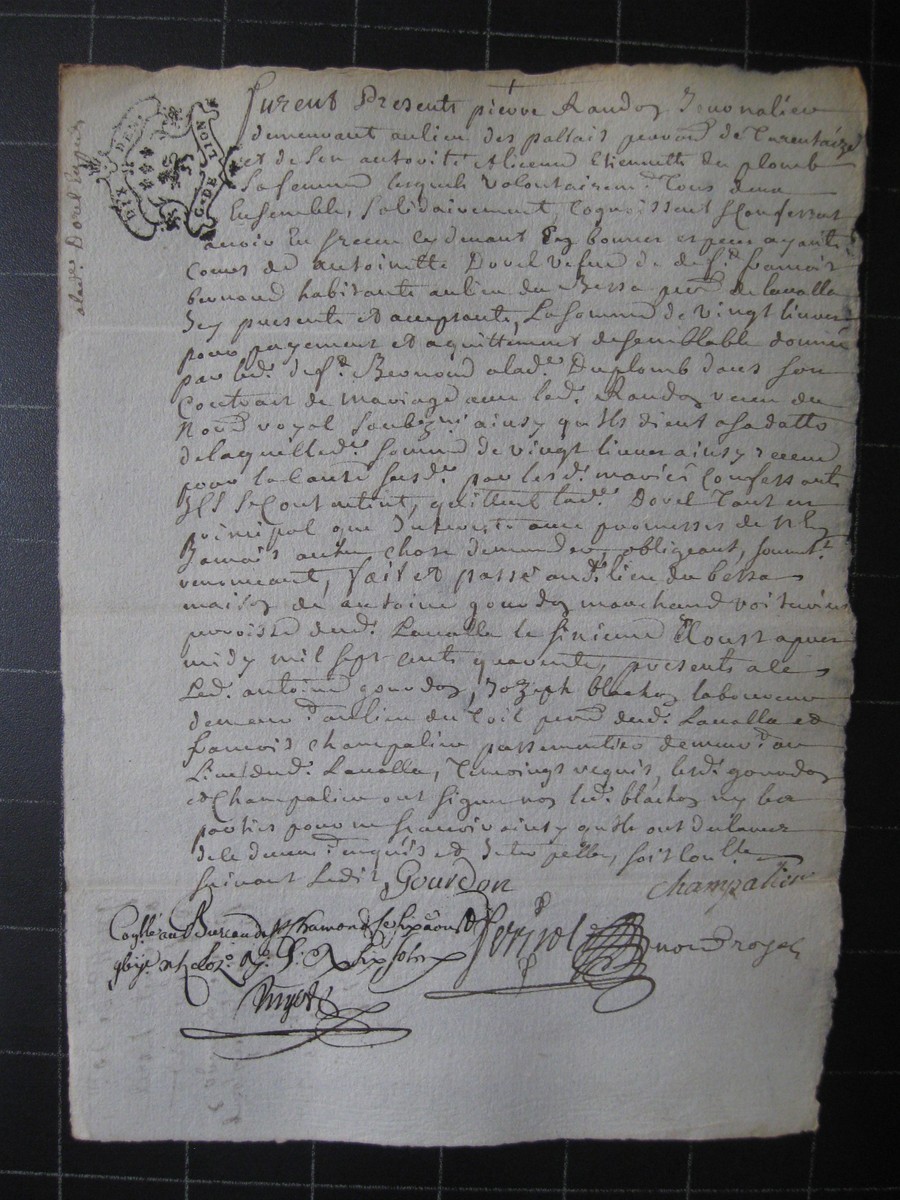 DIX DEN.
G. DE LION
Furent Presents pierre Randon Journalier
demeurant au lieu des pallais parr. de Tarentaize
et de son autorité et licence Etiennette du plomb
sa femme lesquels volontairem.t Tous deux
Ensemble, solidairement, cognoissent & Confessent
avoir Eu & receu cy devant En bonnes especes ayants
Cours de antoinette Dorel vefve de def.t françois
bernoud habitante au lieu du Bessa parr. de lavalla
Icy presente et acceptante, La somme de vingt livres
pour payement et aquittement de semblable donnée
par led. def.t Bernoud a lad.e Duplomb dans son
Contrat de mariage avec led. Randon receu du
No.re royal soubz.né ainsy qu'ils dient a sa datte
de laquelle d.e somme de vingt livres ainsy receue
pour la cause susd.e par lesd. mariés Confessants
Ils se Contentent, quittent lad.e Dorel Tant en
Principal que Interests avec promesses de n'en
Jamais autre chose demander, obligeant, soumett.
renonceant, Fait et passé aud. lieu du bessa
maison de antoine gourdon marchand voiturier
parroisse dud. Lavalla le sixieme Aoust apres
midy mil sept cents quarente, presents a ce
Led. antoine gourdon, Jozeph blachon laboureur
demeur.t au lieu du Toil parr. dud. Lavalla et
françois champalier passementier demeur.t au
Lieu dud. Lavalla, Temoings requis, lesd. gourdon
et Champalier ont signé non led. blachon ny les
parties pour ne sçavoir ainsy qu'ils ont declaré
de le deuement enquis et Interpellés, soit Coullé
suivant Ledit
Gourdon
Champalier
Con.lé au Bureau de St Chamond le six aoust
not. royal